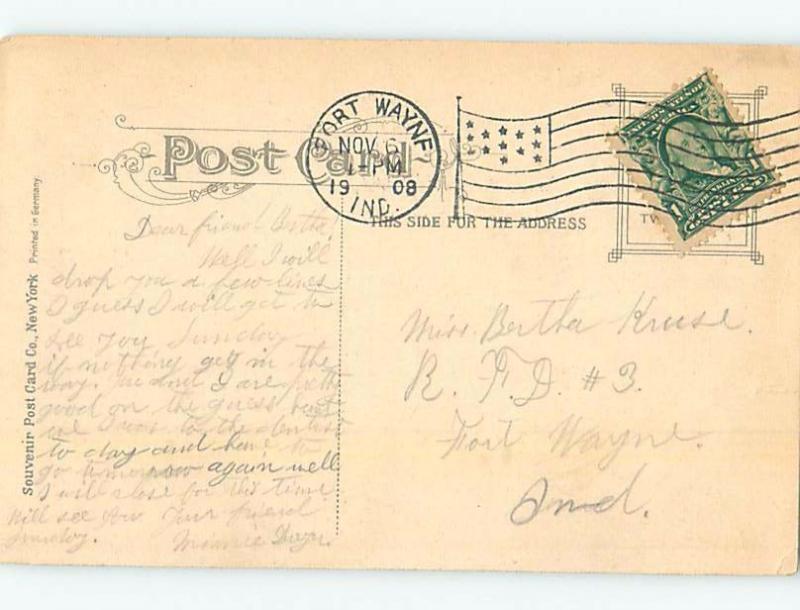 Post Card
FORT WAYNE
NOV 6
1-PM
1908
IND.
THIS SIDE FOR THE ADDRESS
Souvenir Post Card Co., New York Printed in Germany
Dear friend Bertha!
Well I will
drop you a few lines
I guess I will get to
see you Sunday
if nothing gets in the
way. and I are
good on the guess
I was to the dentist
to day and have to
go tomorrow again well
I will close for this time
Will see you Your friend
Sunday. Minnie
Miss. Bertha Kruse.
R. F. D. # 3.
Fort Wayne.
Ind.